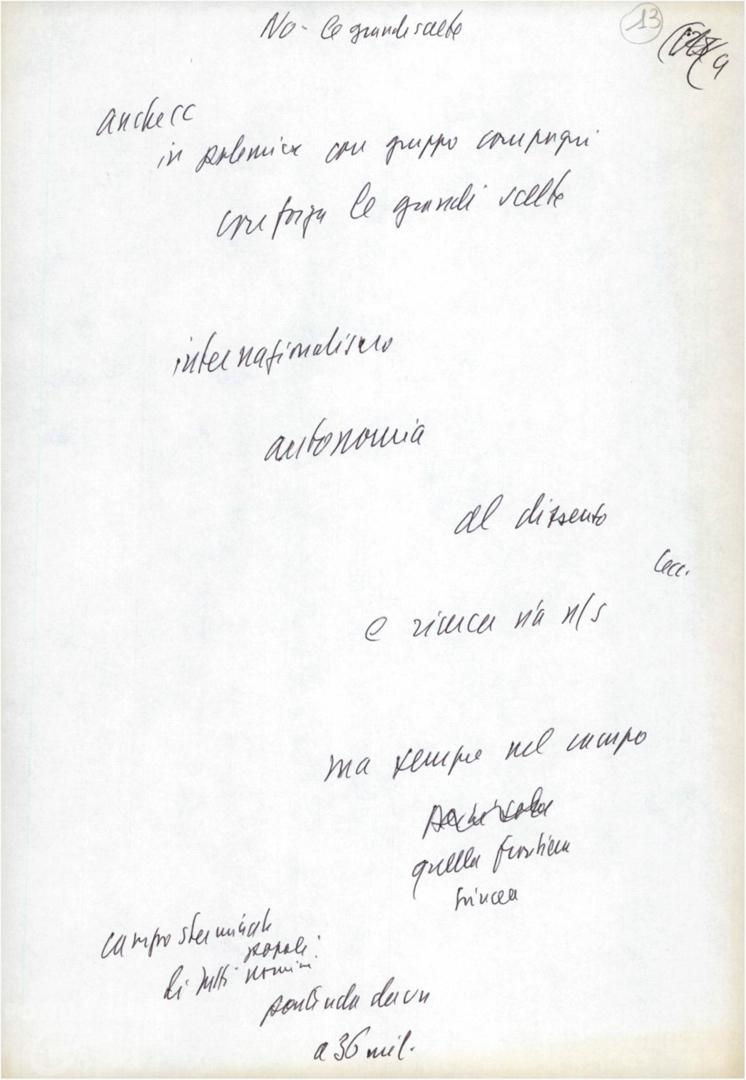 No - le grandi scelte
13
anche cc
in polemica con gruppo compagni
con forza le grandi scelte
internazionalismo
autonomia
al dissento
ecc.
e ricerca via n/s
ma sempre nel campo
quella frontiera
trincea
campo sterminato
popoli
di tutti uomini
a 36 mil.